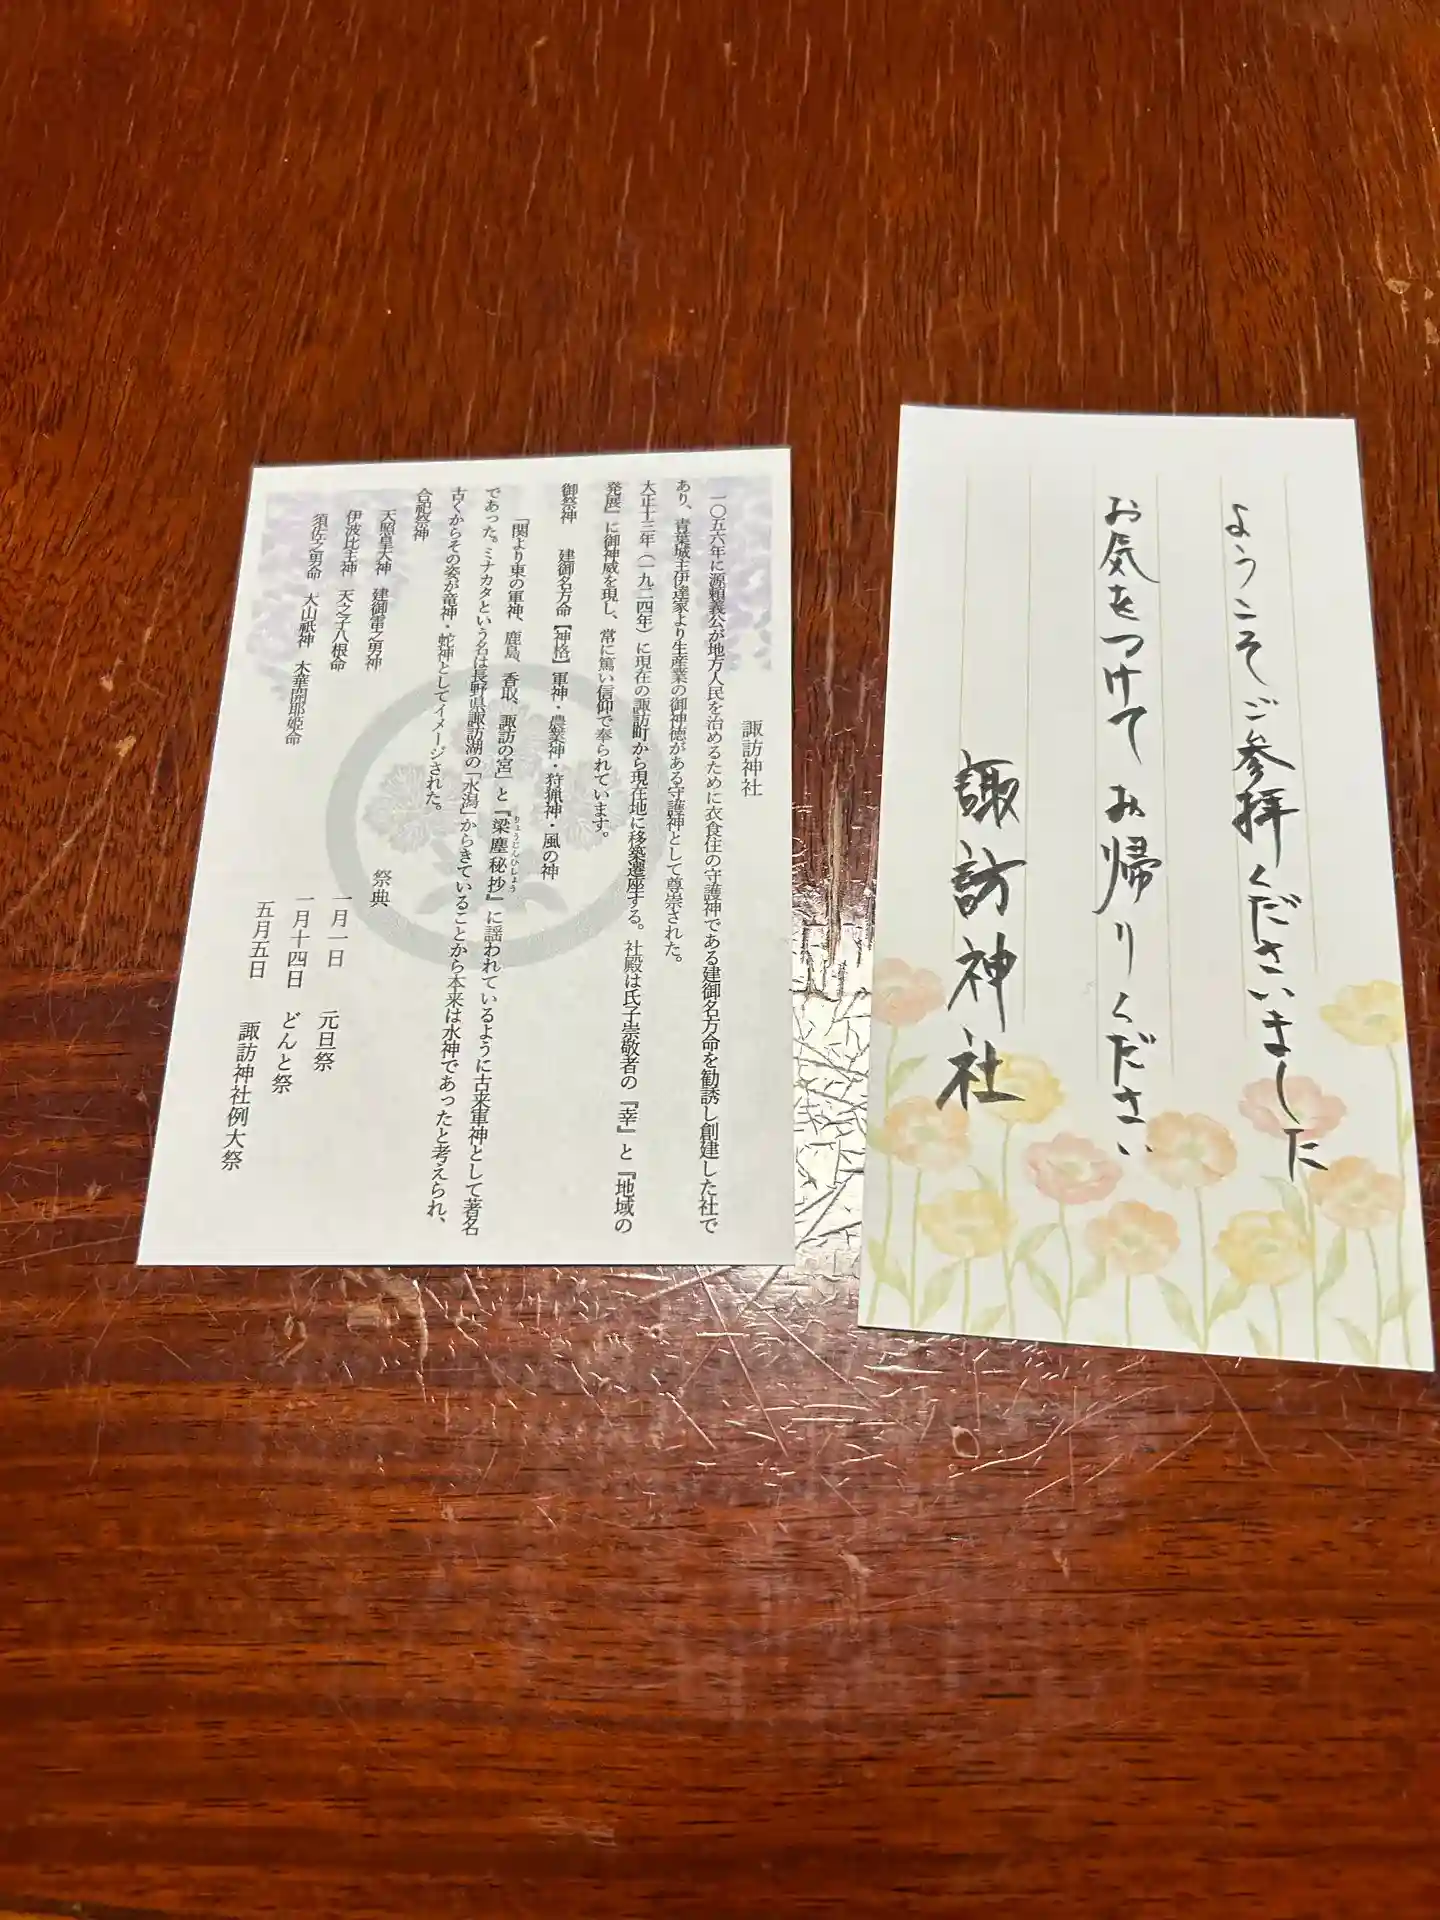 ようこそご参拝くださいました
お気をつけてお帰りください
諏訪神社
諏訪神社
一〇五六年に源頼義公が地方人民を治めるために衣食住の守護神である建御名方命を勧誘し創建した社で
あり、青葉城主伊達家より生産業の御神徳がある守護神として尊崇された。
大正十三年（一九二四年）に現在の諏訪町から現在地に移築遷座する。社殿は氏子崇敬者の『幸』と『地域の
発展』に御神威を現し、常に篤い信仰で奉られています。
御祭神　建御名方命【神格】軍神・農業神・狩猟神・風の神
「関より東の軍神、鹿島、香取、諏訪の宮」と『梁塵秘抄』に謡われているように古来軍神として著名
りょうじんひしょう
であった。ミナカタという名は長野県諏訪湖の「水潟」からきていることから本来は水神であったと考えられ、
古くからその姿が竜神・蛇神としてイメージされた。
合祀祭神
天照皇大神　建御雷之男神
伊波比主神　天之子八根命
須佐之男命　大山祇神　木華開耶姫命
祭典
一月一日　元旦祭
一月十四日　どんと祭
五月五日　諏訪神社例大祭